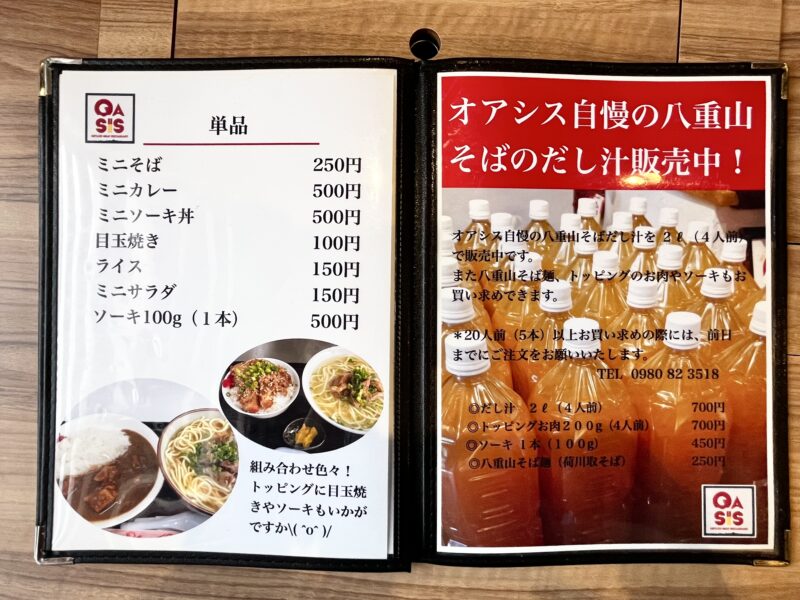 OASIS
単品
ミニそば 250円
ミニカレー 500円
ミニソーキ丼 500円
目玉焼き 100円
ライス 150円
ミニサラダ 150円
ソーキ100g（１本） 500円
組み合わせ色々！
トッピングに目玉焼
きやソーキもいかが
ですか\( ˆoˆ )/
オアシス自慢の八重山
そばのだし汁販売中！
オアシス自慢の八重山そばだし汁を ２ℓ（４人前）
で販売中です。
また八重山そば麺、トッピングのお肉やソーキもお
買い求めできます。
＊20人前（5本）以上お買い求めの際には、前日
までにご注文をお願いいたします。
TEL 0980 82 3518
◎だし汁 ２ℓ（４人前） 700円
◎トッピングお肉２００g (4人前) 700円
◎ソーキ １本（１００g） 450円
◎八重山そば麺（荷川取そば） 250円
OASIS